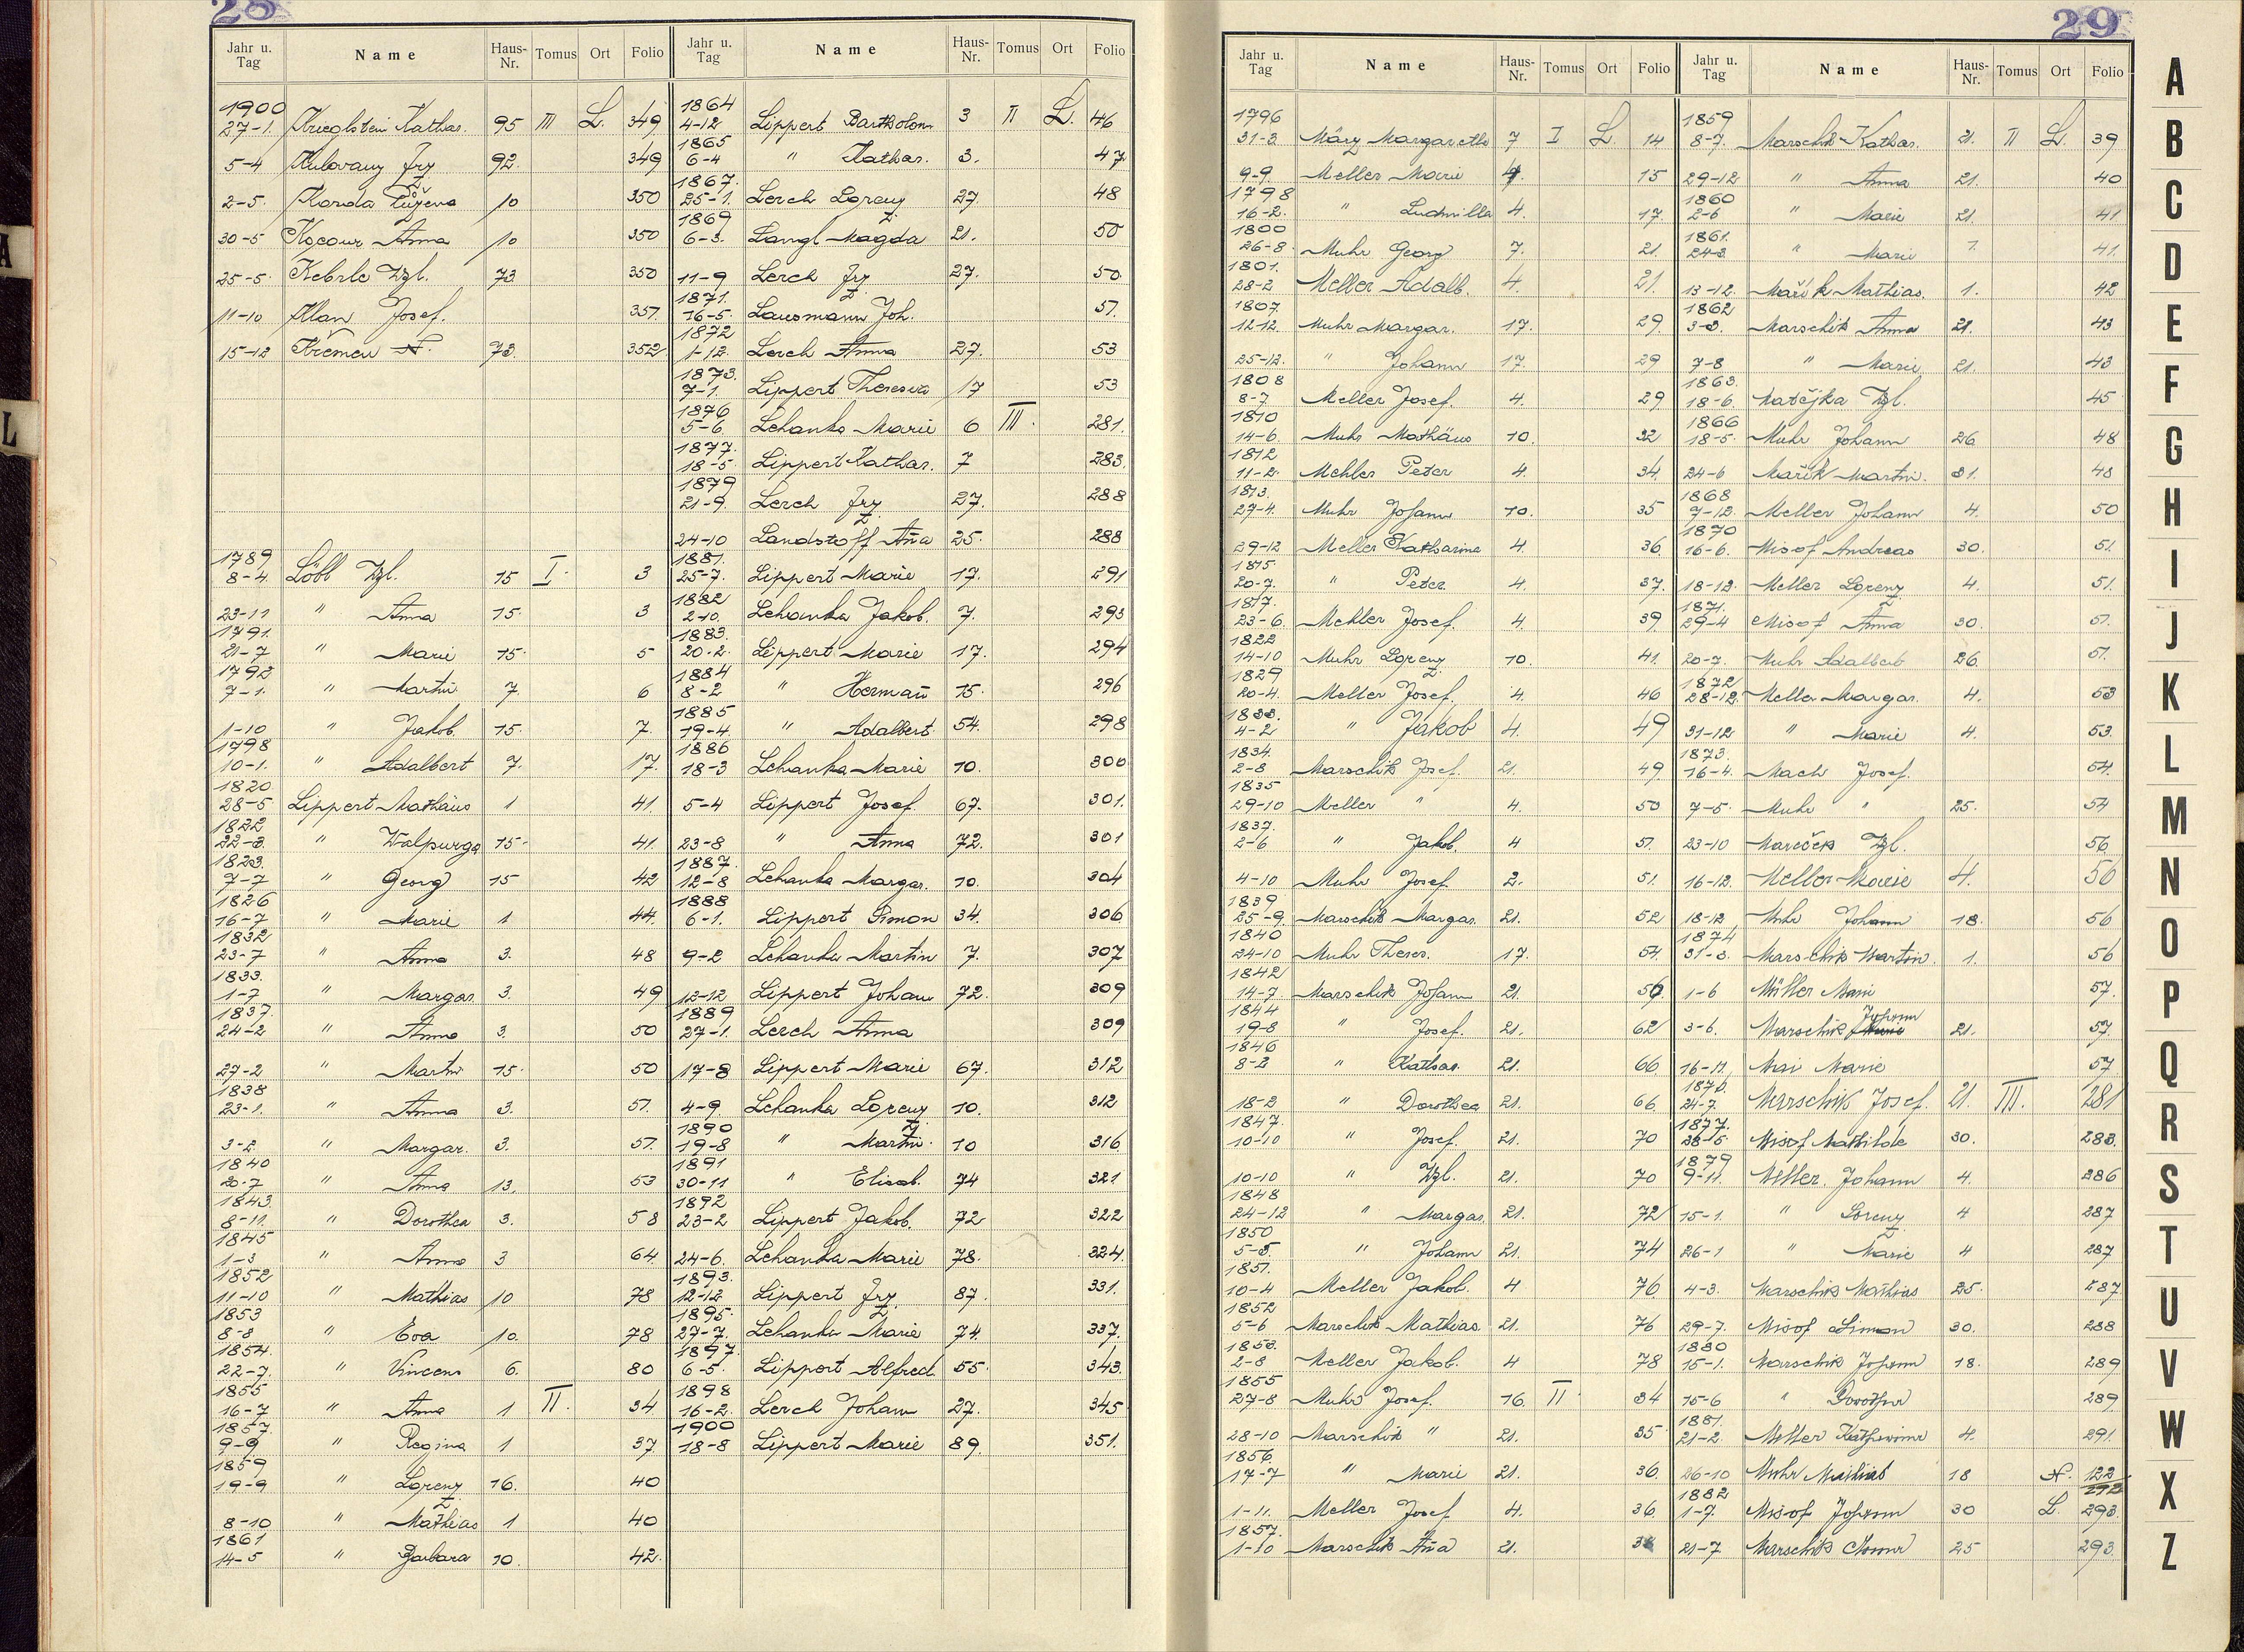 28
Jahr u. Tag Name Haus-Nr. Tomus Ort Folio
1900
27-1. Krieglstein Kathar. 95 III L. 349
5-4 Kulovany Frz. 92. 349
2-5. Korda Růžena 10 350
30-5 Kocour Anna 10 350
25-5. Keberle Wzl. 73 350
11-10 Klan Josef. 351.
15-12 Křemen N. 73. 352
1789
8-4. Löbl Wzl. 15 I. 3
23-11 " Anna 15. 3
1791.
21-7 " Marie 15. 5
1792
7-1. " Martin 7. 6
1-10 " Jakob. 15. 7.
1798
10-1. " Adalbert 7. 17.
1820
28-5 Lippert Mathäus 1 41.
1822
22-3. " Walpurga 15. 41.
1823.
7-7 " Georg 15 42
1826
16-7 " Marie 1 44.
1832
23-7 " Anna 3. 48
1833.
1-7 " Margar. 3. 49
1837.
24-2 " Anna 3. 50
27-2 " Martin 15. 50
1838
23-1. " Anna 3. 51.
3-2. " Margar. 3. 51.
1840
20-7 " Anna 13. 53
1843.
8-11. " Dorothea 3. 58
1845
1-3 " Anna 3 64.
1852
11-10 " Mathias 10 78
1853
8-8 " Eva 10. 78
1854.
22-7. " Vincenz 6. 80
1855
16-7 " Anna 1 II. 34
1857.
9-9 " Regina 1 37.
1859
19-9 " Lorenz 16. 40
8-10 " Mathias 1 40
1861
14-5 " Barbara 10. 42.
Jahr u. Tag Name Haus-Nr. Tomus Ort Folio
1864
4-12 Lippert Bartholom 3 II L. 46
1865
6-4 " Kathar. 3. 47
1867.
25-1. Lerch Lorenz 27. 48
1869
6-3. Langl Magda 21. 50
11-9 Lerch Frz. 27. 50.
1871.
16-5. Lausmann Joh. 51.
1872
1-12. Lerch Anna 27. 53
1873.
7-1. Lippert Theresia 17 53
1876
5-6. Lehanka Marie 6 III. 281.
1877.
18-5. Lippert Kathar. 7 283.
1879
21-9. Lerch Frz. 27. 288
24-10 Landstoff Aña 25. 288
1881.
25-7. Lippert Marie 17. 291
1882
2-10. Lehanka Jakob. 7. 293
1883.
20-2. Lippert Marie 17. 294
1884
8-2 " Hermañ 15. 296
1885
19-4. " Adalbert. 54. 298
1886
18-3 Lehanka Marie 10. 300
5-4 Lippert Josef. 67. 301.
23-8 " Anna 72. 301
1887.
12-8 Lehanka Margar. 10. 304
1888
6-1. Lippert Simon 34. 306
9-2 Lehanka Martin 7. 307
12-12 Lippert Johan 72. 309
1889
27-1. Lerch Anna 309
17-8 Lippert Marie 67. 312
4-9. Lehanka Lorenz 10. 312
1890
19-8 " Martin. 10 316
1891
30-11 " Elisab. 74 321
1892
23-2 Lippert Jakob. 72 322
24-6. Lehanka Marie 78. 324.
1893.
12-12 Lippert Frz. 87. 331.
1895.
27-7. Lehanka Marie 74. 337.
1897.
6-5. Lippert Alfred. 55. 343.
1898
16-2. Lerch Johann 27. 345.
1900
18-8 Lippert Marie 89. 351.
29
Jahr u. Tag Name Haus-Nr. Tomus Ort Folio
1796
31-3. Märg Margareth 7 I L. 14
9-9. Meller Marie 4. 15
1798
16-2. " Ludmilla 4. 17
1800
26-8. Muhr Georg 7. 21.
1801.
28-2 Meller Adalb. 4. 21.
1807.
12-12. Muhr Margar. 17. 29
25-12. " Johann 17. 29
1808
8-7. Meller Josef. 4. 29
1810
14-6. Muhr Mathäus 10. 32
1812
11-2. Mehler Peter 4. 34.
1813.
27-4. Muhr Johann 10. 35
29-12 Meller Katharina 4. 36
1815.
20-7. " Peter 4. 37.
1817.
23-6. Mehler Josef. 4. 39.
1822
14-10 Muhr Lorenz 10. 41.
1829
20-4. Meller Josef. 4. 46
1833.
4-2 " Jakob 4. 49
1834.
2-8 Marschik Josef. 21. 49
1835
29-10 Meller " 4. 50
1837.
2-6 " Jakob. 4 51
4-10 Muhr Josef. 2. 51.
1839
25-9. Marschik Margar. 21. 52
1840
24-10 Muhr Theres. 17. 54.
1842
14-7 Marschik Johann 21. 56.
1844
19-8 " Josef. 21. 62
1846
8-2 " Kathar. 21. 66
18-2 " Dorothea 21. 66.
1847.
10-10 " Josef. 21. 70
10-10 " Wzl. 21. 70
1848
24-12 " Margar. 21. 72
1850
5-5. " Johann 21. 74
1851.
10-4 Meller Jakob. 4 76
1852
5-6 Marschik Mathias 21. 76
1853.
2-8 Meller Jakob. 4 78
1855
27-8 Muhr Josef. 16. II. 34
28-10 Marschik " 21. 35
1856.
17-7 " Marie 21. 36.
1-11. Meller Josef 4. 36.
1857.
1-10 Marschik Aña 21.
Jahr u. Tag Name Haus-Nr. Tomus Ort Folio
1859
8-7. Marschik Kathar. 21. II L. 39
29-12 " Anna 21. 40
1860
2-6 " Marie 21. 41
1861.
24-3. " Marie 41.
13-12. Mařík Mathias 1. 42
1862
3-3. Marschik Anna 21. 43
7-8 " Marie 21. 43
1863.
18-6. Matějka Wzl. 45
1866
18-5. Muhr Johann 26 48
24-6 Mařík Martin. 31. 48
1868
7-12. Meller Johann 4. 50
1870
16-6. Misof Andreas 30. 51.
18-12. Meller Lorenz 4. 51.
1871.
29-4 Misof Anna 30. 51.
20-7. Muhr Adalbert 26. 51.
1872
28-12. Meller Margar. 4. 53
31-12 " Marie 4. 53.
1873.
16-4. Mach Josef. 54.
7-5. Muhr " 25. 54
23-10 Mareček Wzl. 56.
16-12. Meller Marie 4. 56
18-12 Muhr Johann 18. 56
1874
31-3. Marschik Martin. 1. 56
1-6 Müller Marie 57.
3-6. Marschik Johann 21. 57.
16-11. Mai Marie 57
1876.
24-7. Marschik Josef. 21. III. 281
1877.
28-5 Misof Mathilde 30. 283.
1879
9-11. Meller Johann 4. 286
15-1. " Lorenz 4 287
26-1 " Marie 4 287
4-3. Marschik Mathias 25. 287
29-7. Misof Simon 30. 288
1880
15-1. Marschik Johann 18. 289
15-6 " Dorothea 289
1881.
21-2. Meller Katharina 4. 291.
26-10 Muhr Mathias 18 N. 122
292
1882
1-7. Misof Johann 30 L. 293.
21-7 Marschik Anna 25 293.
A
B
C
D
E
F
G
H
I
J
K
L
M
N
O
P
Q
R
S
T
U
V
W
X
Z
A
L